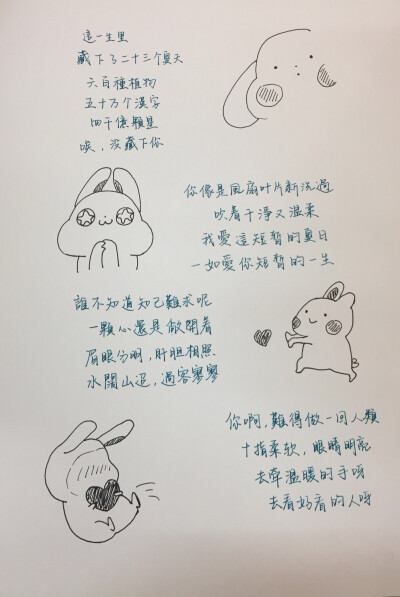 這一生里
藏下了二十三个夏天
六百種植物
五十万个漢字
四千億顆星
唉,没藏下你
你像是風扇叶片新洗過
吹着干淨又温柔
我愛這短暫的夏日
一如爱你短暫的一生
誰不知道知己難求呢
一顆心還是敞開着
眉眼分明,肝胆相照
水闊山迢,過客寥寥
你啊,難得做一回人類
十指柔软,眼睛明亮
去牵温暖的手呀
去看好看的人呀